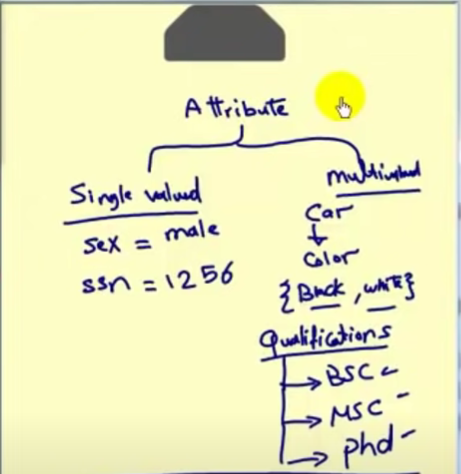 Attribute
Single valued
Sex = male
SSn = 1256
multivalued
Car
Color
{Black, white}
Qualifications
BSC
MSC
phd